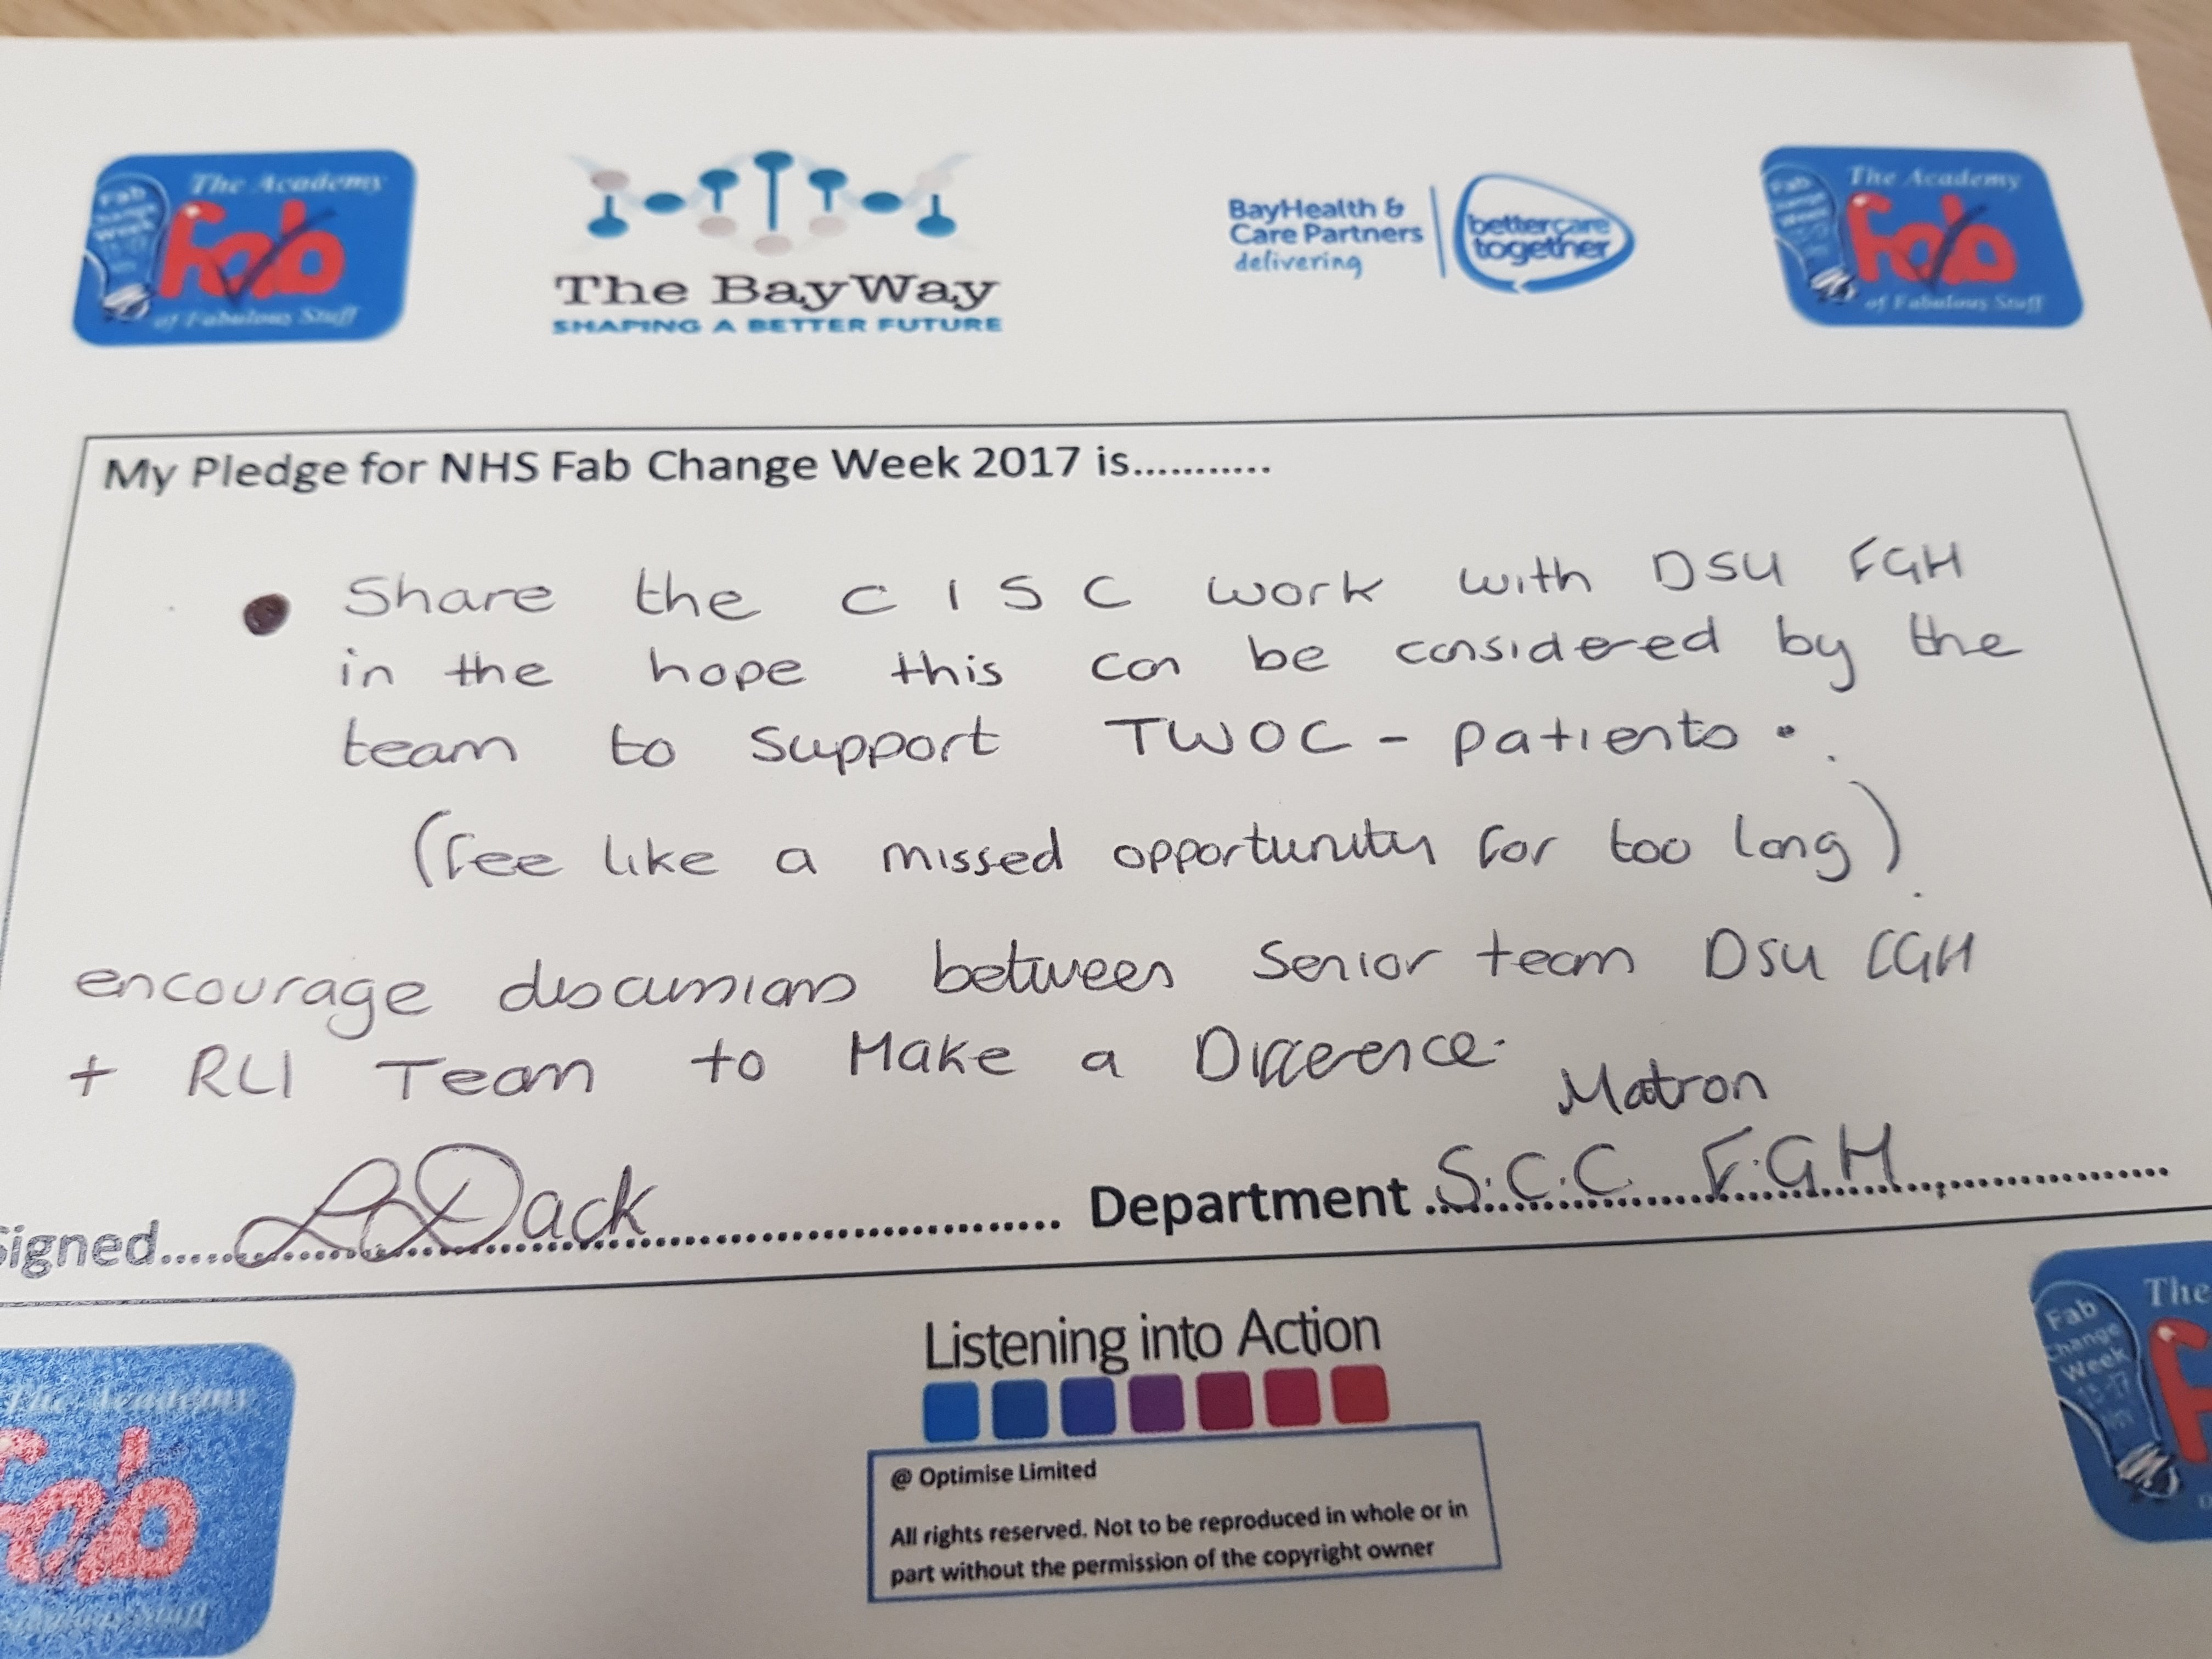 The Academy
Fab
of Fabulous Stuff
Fab
Change
Week
The BayWay
SHAPING A BETTER FUTURE
BayHealth &
Care Partners
delivering
bettercare
together
The Academy
Fab
of Fabulous Stuff
Fab
Change
Week
My Pledge for NHS Fab Change Week 2017 is...........
• Share the C I S C work with DSU FGH
in the hope this can be considered by the
team to support TWOC - patients .
(Fee like a missed opportunity for too long).
encourage discussions between Senior team DSU FGH
+ RLI Team to Make a Difference.
Matron
Signed..... Dack .............................. Department S.C.C F.G.H
Listening into Action
@ Optimise Limited
All rights reserved. Not to be reproduced in whole or in
part without the permission of the copyright owner
The Academy
Fab
The
Fab
Change
Week